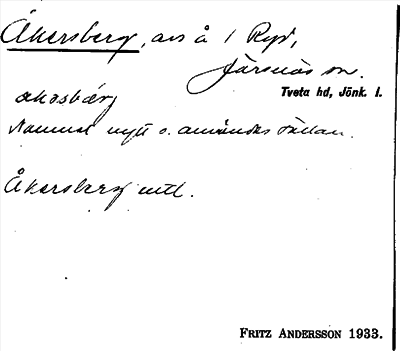 Åkersberg, avs å 1 Ryd,
Järsnäs sn.
Tveta hd, Jönk. l.
åkasbärj
Namnet nytt o. användes sällan.
Åkersberg mtl.
FRITZ ANDERSSON 1933.